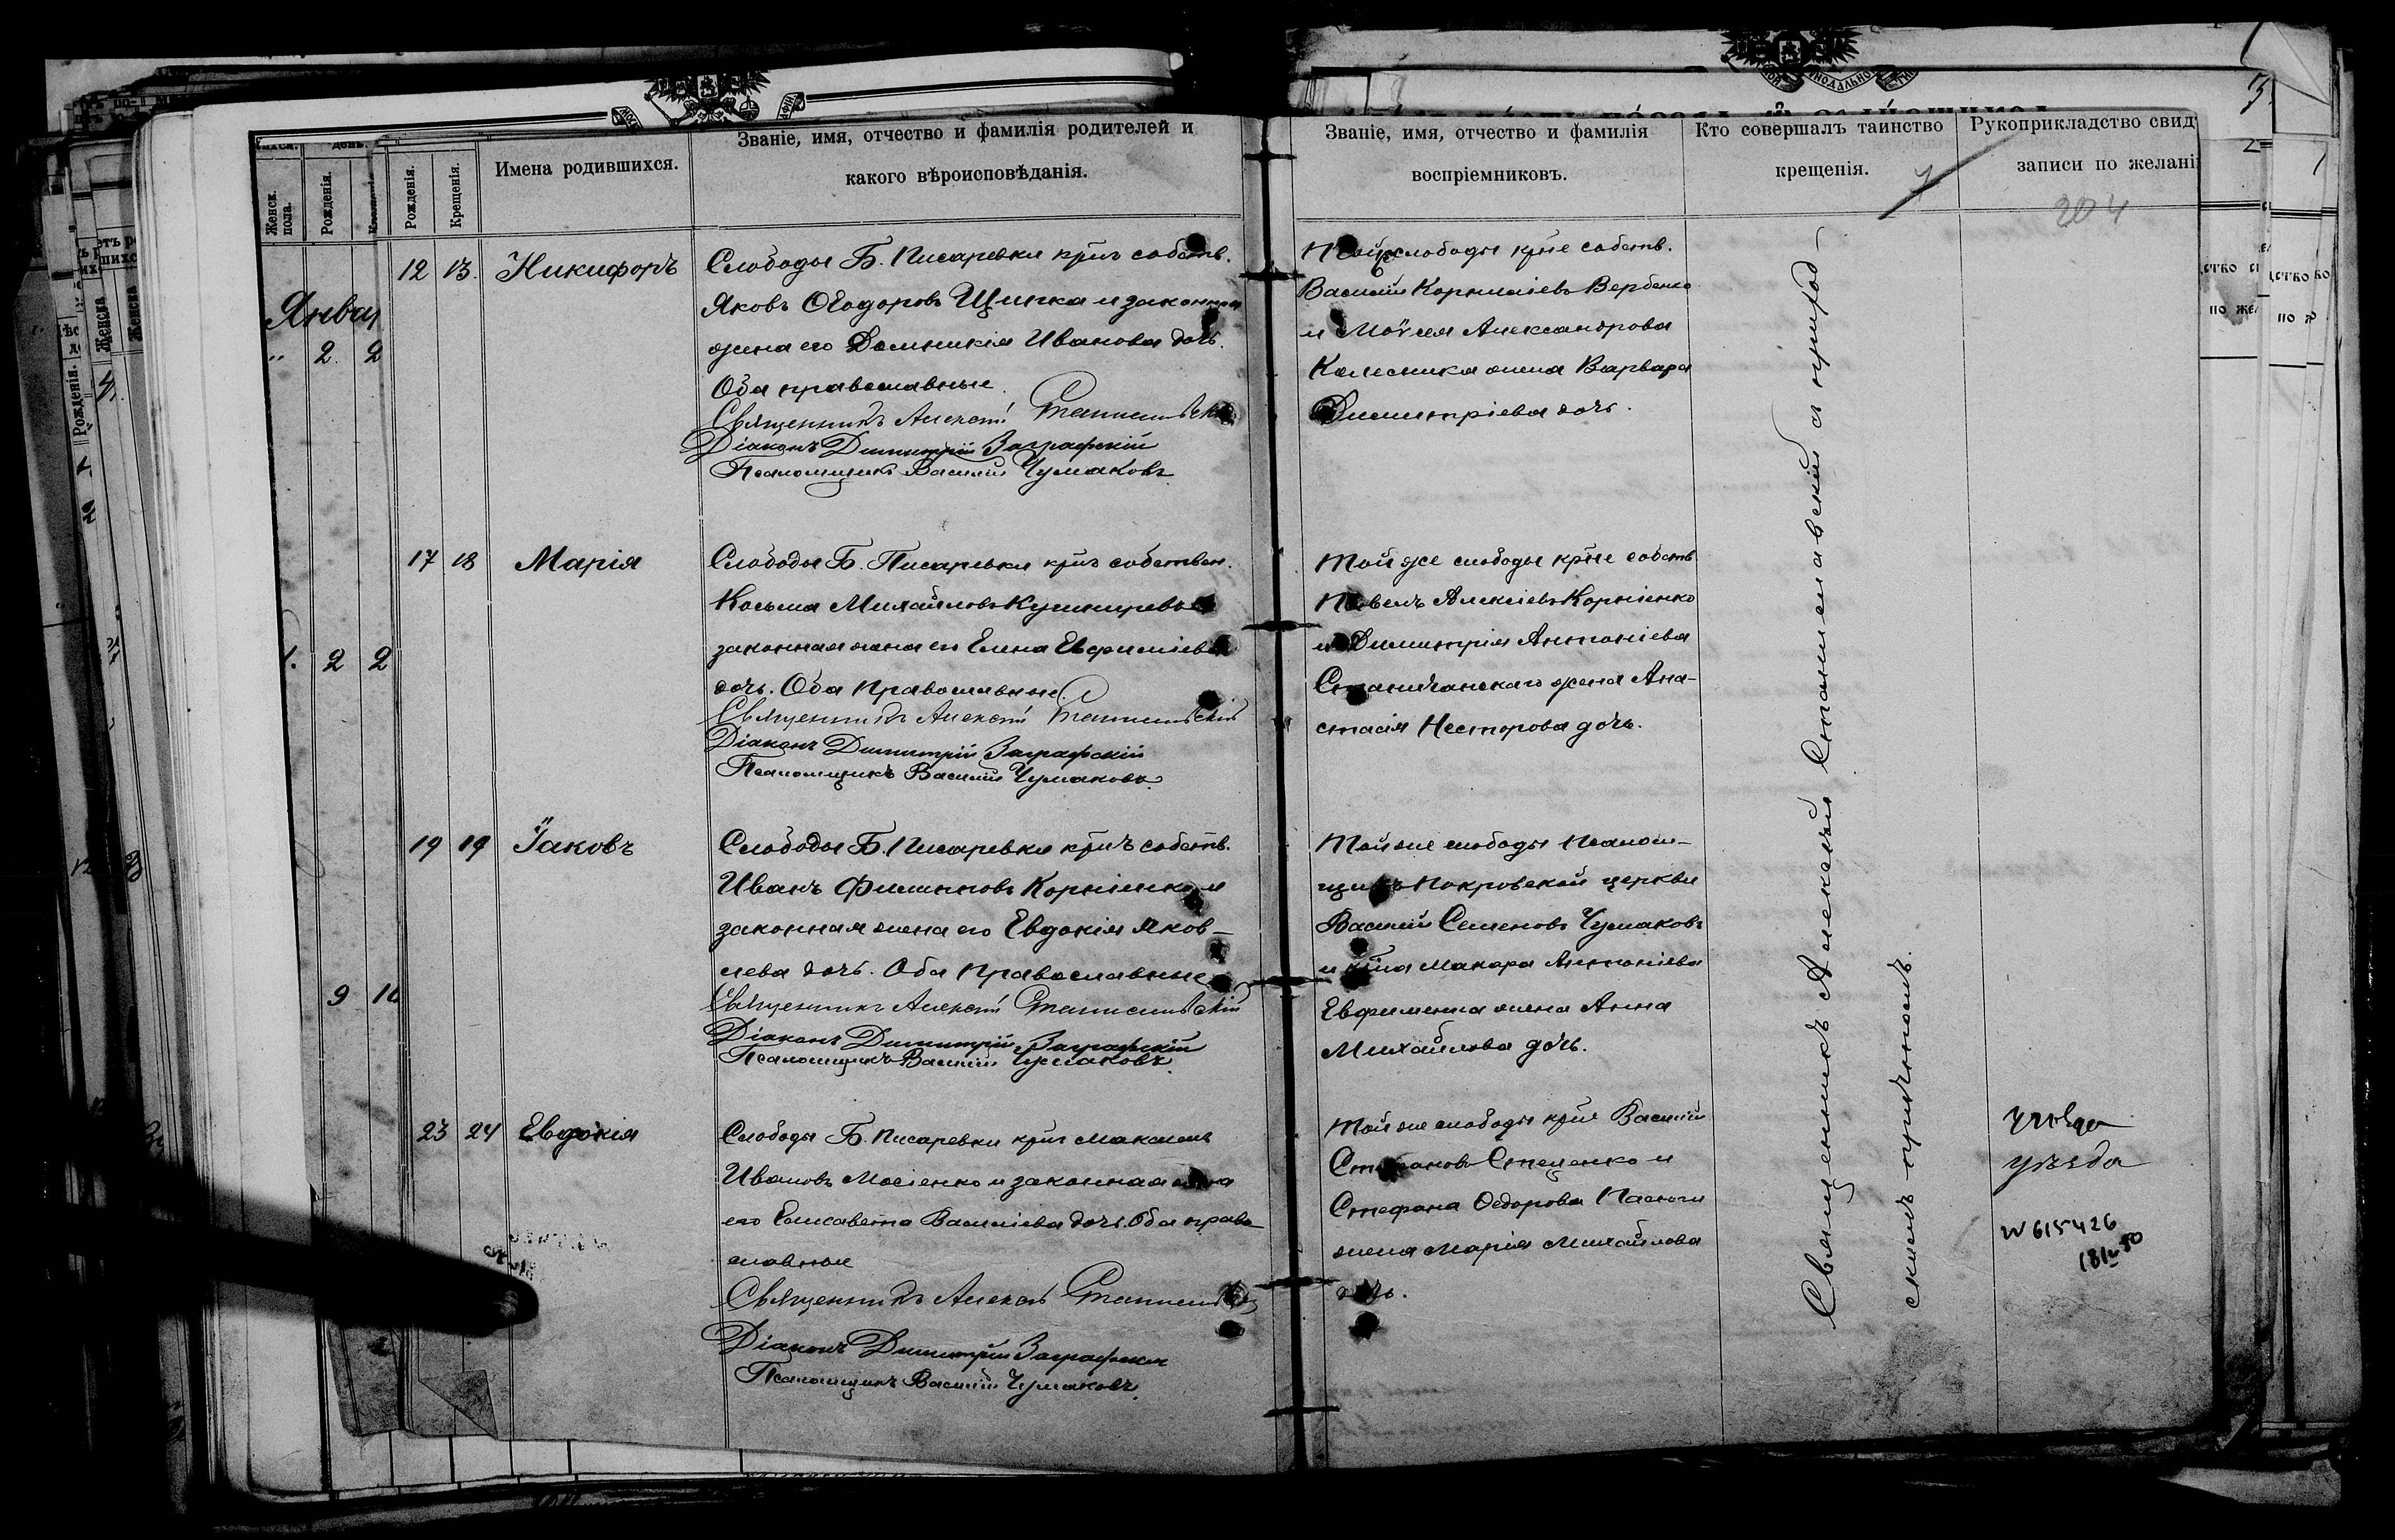 Имена родившихся.
Званіе, имя, отчество и фамилія родителей и
какого вѣроисповѣданія.
Званіе, имя, отчество и фамилія
воспріемниковъ.
Кто совершалъ таинство
крещенія.
Рукоприкладство свид
записи по желані
Женск. пола.
Рожденія.
Рожденія.
Крещенія.
204
12 13. Никифоръ
Слободы Б. Писаревки кр͠нъ собств.
Яковъ Ѳеодоровъ Щипка и законная
жена его Домникія Иванова дочь.
Оба православные.
Священникъ Алексѣй Станиславскій
Діаконъ Димитрій Заграфскій
Псаломщикъ Василій Чумаковъ
слободы кр͠не собств.
Василій Корниліевъ Вербенко
и Моѵсея Александрова
Колесника жена Варвара
Димитріева дочь.
Январ
" 2. 2
17 18 Марія
Слободы Б. Писаревки кр͠нъ собствен.
Косьма Михайловъ
законная жена его Елена Евфиміева
дочь. Оба православные.
Священникъ Алексѣй Станиславскій
Діаконъ Димитрій Заграфскій
Псаломщикъ Василій Чумаковъ
Той же слободы кр͠не собств.
Павелъ Алексѣевъ Корніенко
и Димитрія Антоніева
Станичанскаго жена Ана-
стасія Несторова дочь.
2 2
19 19 Іаковъ
Слободы Б. Писаревки кр͠нъ собств.
Иванъ Филипповъ Корніенко и
законная жена его Евдокія Яков-
лева дочь. Оба православные
Священникъ Алексѣй Станиславскій
Діаконъ Димитрій Заграфскій
Псаломщикъ Василій Чумаковъ
Той же слободы Псалом-
щикъ Покровской церкви
Василій Семеновъ Чумаковъ
и кр͠на Макара Антоніева
Евфименка жена Анна
Михайлова дочь.
9
23 24 Евдокія
Слободы Б. Писаревки кр͠нъ Максимъ
Ивановъ Мосіенко и законная жена
его Елисавета Василіева дочь. Оба право-
славные
Священникъ Алексѣй Станиславскій
Діаконъ Димитрій Заграфскій
Псаломщикъ Василій Чумаковъ
Той же слободы кр͠не Василій
Стефановъ Стеценко и
Стефана Ѳедорова
жена Марія Михайлова
дочь.
Священникъ Алексѣй Станиславскій съ приход-
скимъ причтомъ.
уѣзда
W 615426